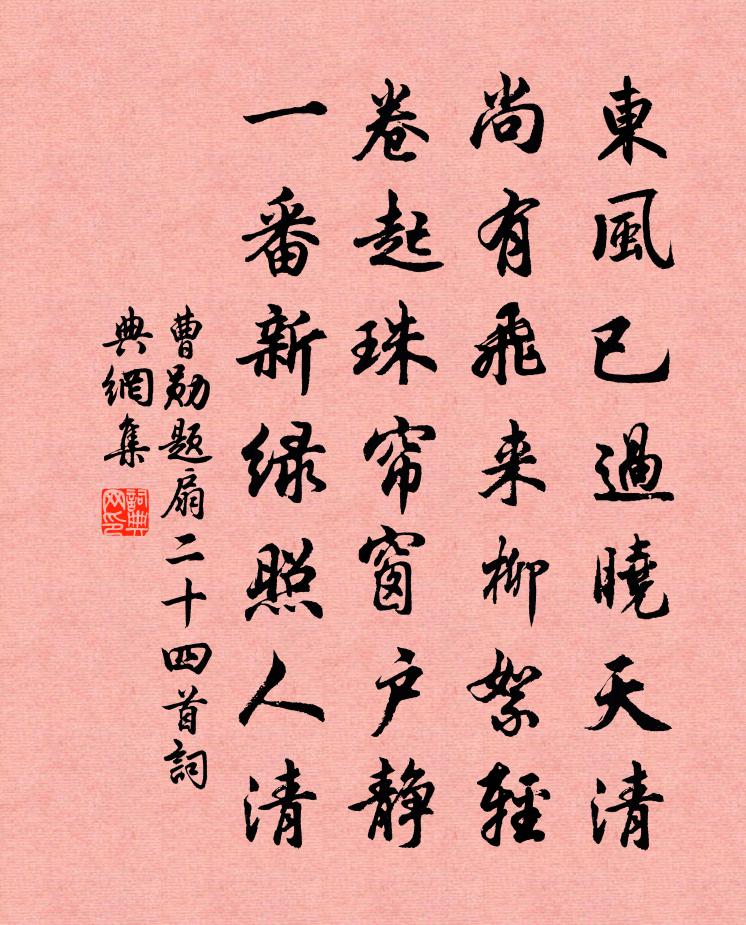 東風已過曉天清
尚有飛来柳絮輕
卷起珠帘窗户靜
一番新绿照人清
曹勋题扇二十四首詞
典網集
詞典
网印